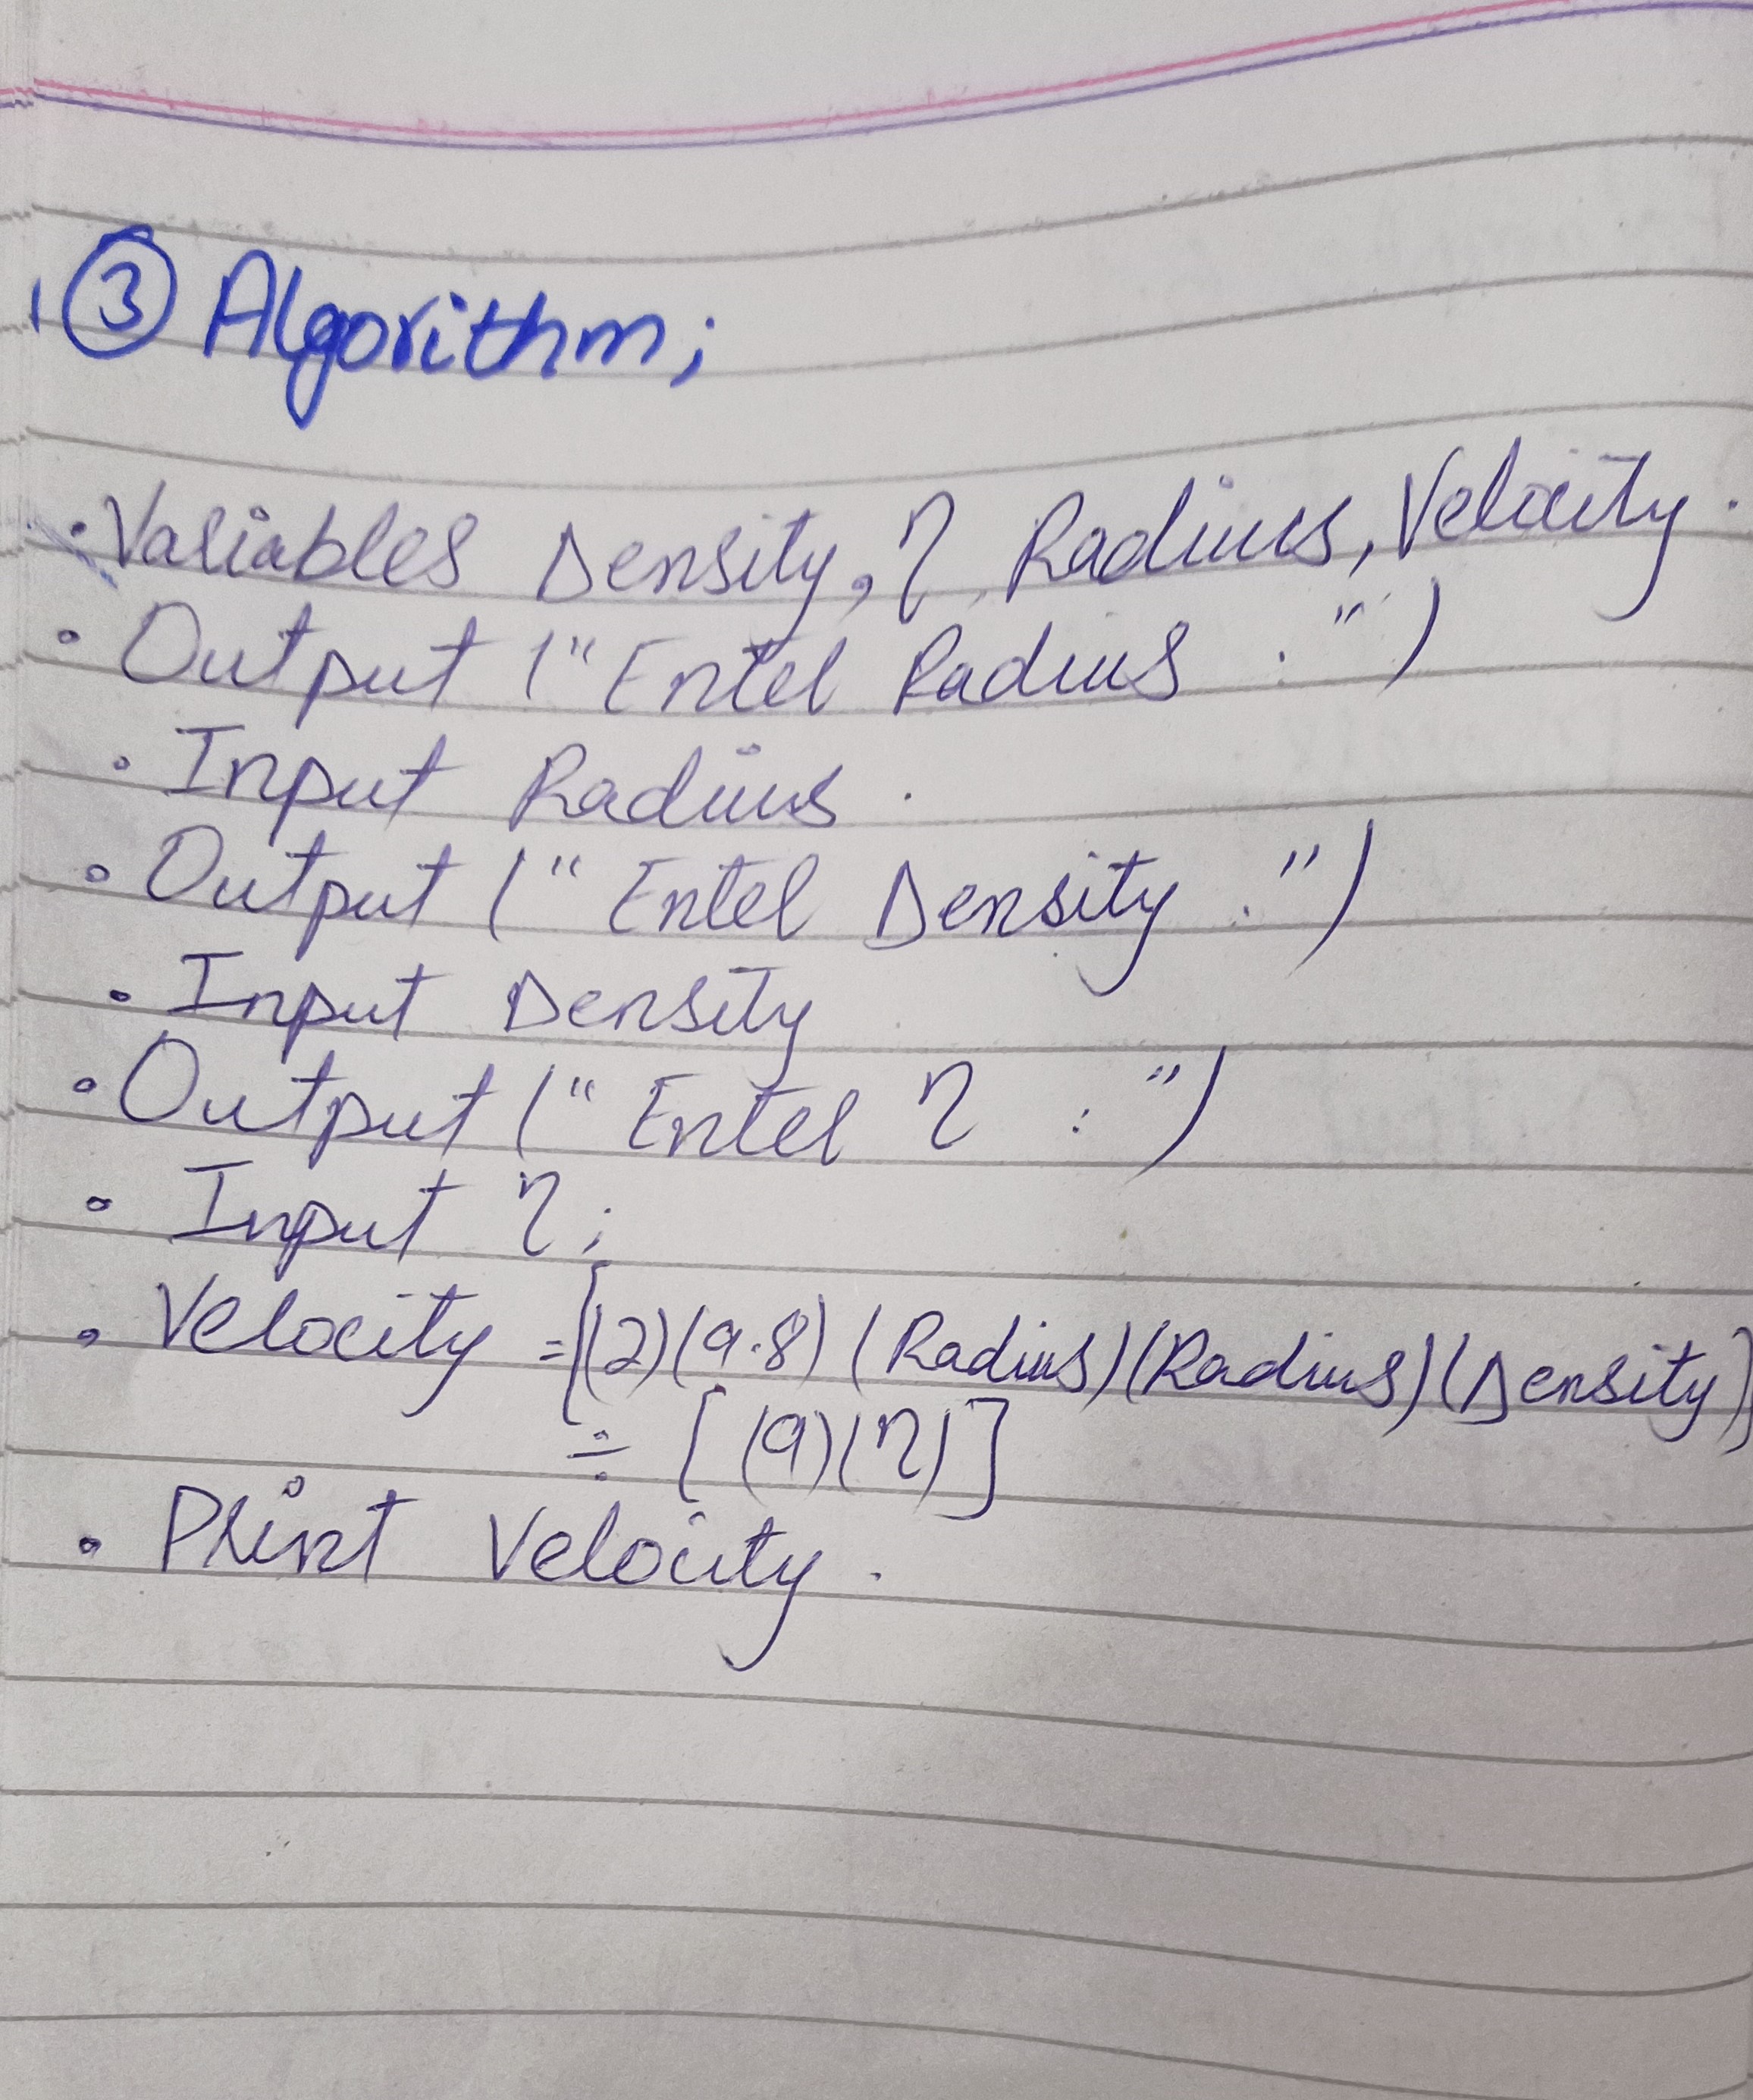 ③ Algorithm;
• Variables Density, η, Radius, Velocity.
• Output ("Enter Radius : ")
• Input Radius.
• Output ("Enter Density : ")
• Input Density
• Output ("Enter η : ")
• Input η;
• Velocity = [(2)(9.8)(Radius)(Radius)(Density)]
÷ [(9)(η)]
• Print Velocity.